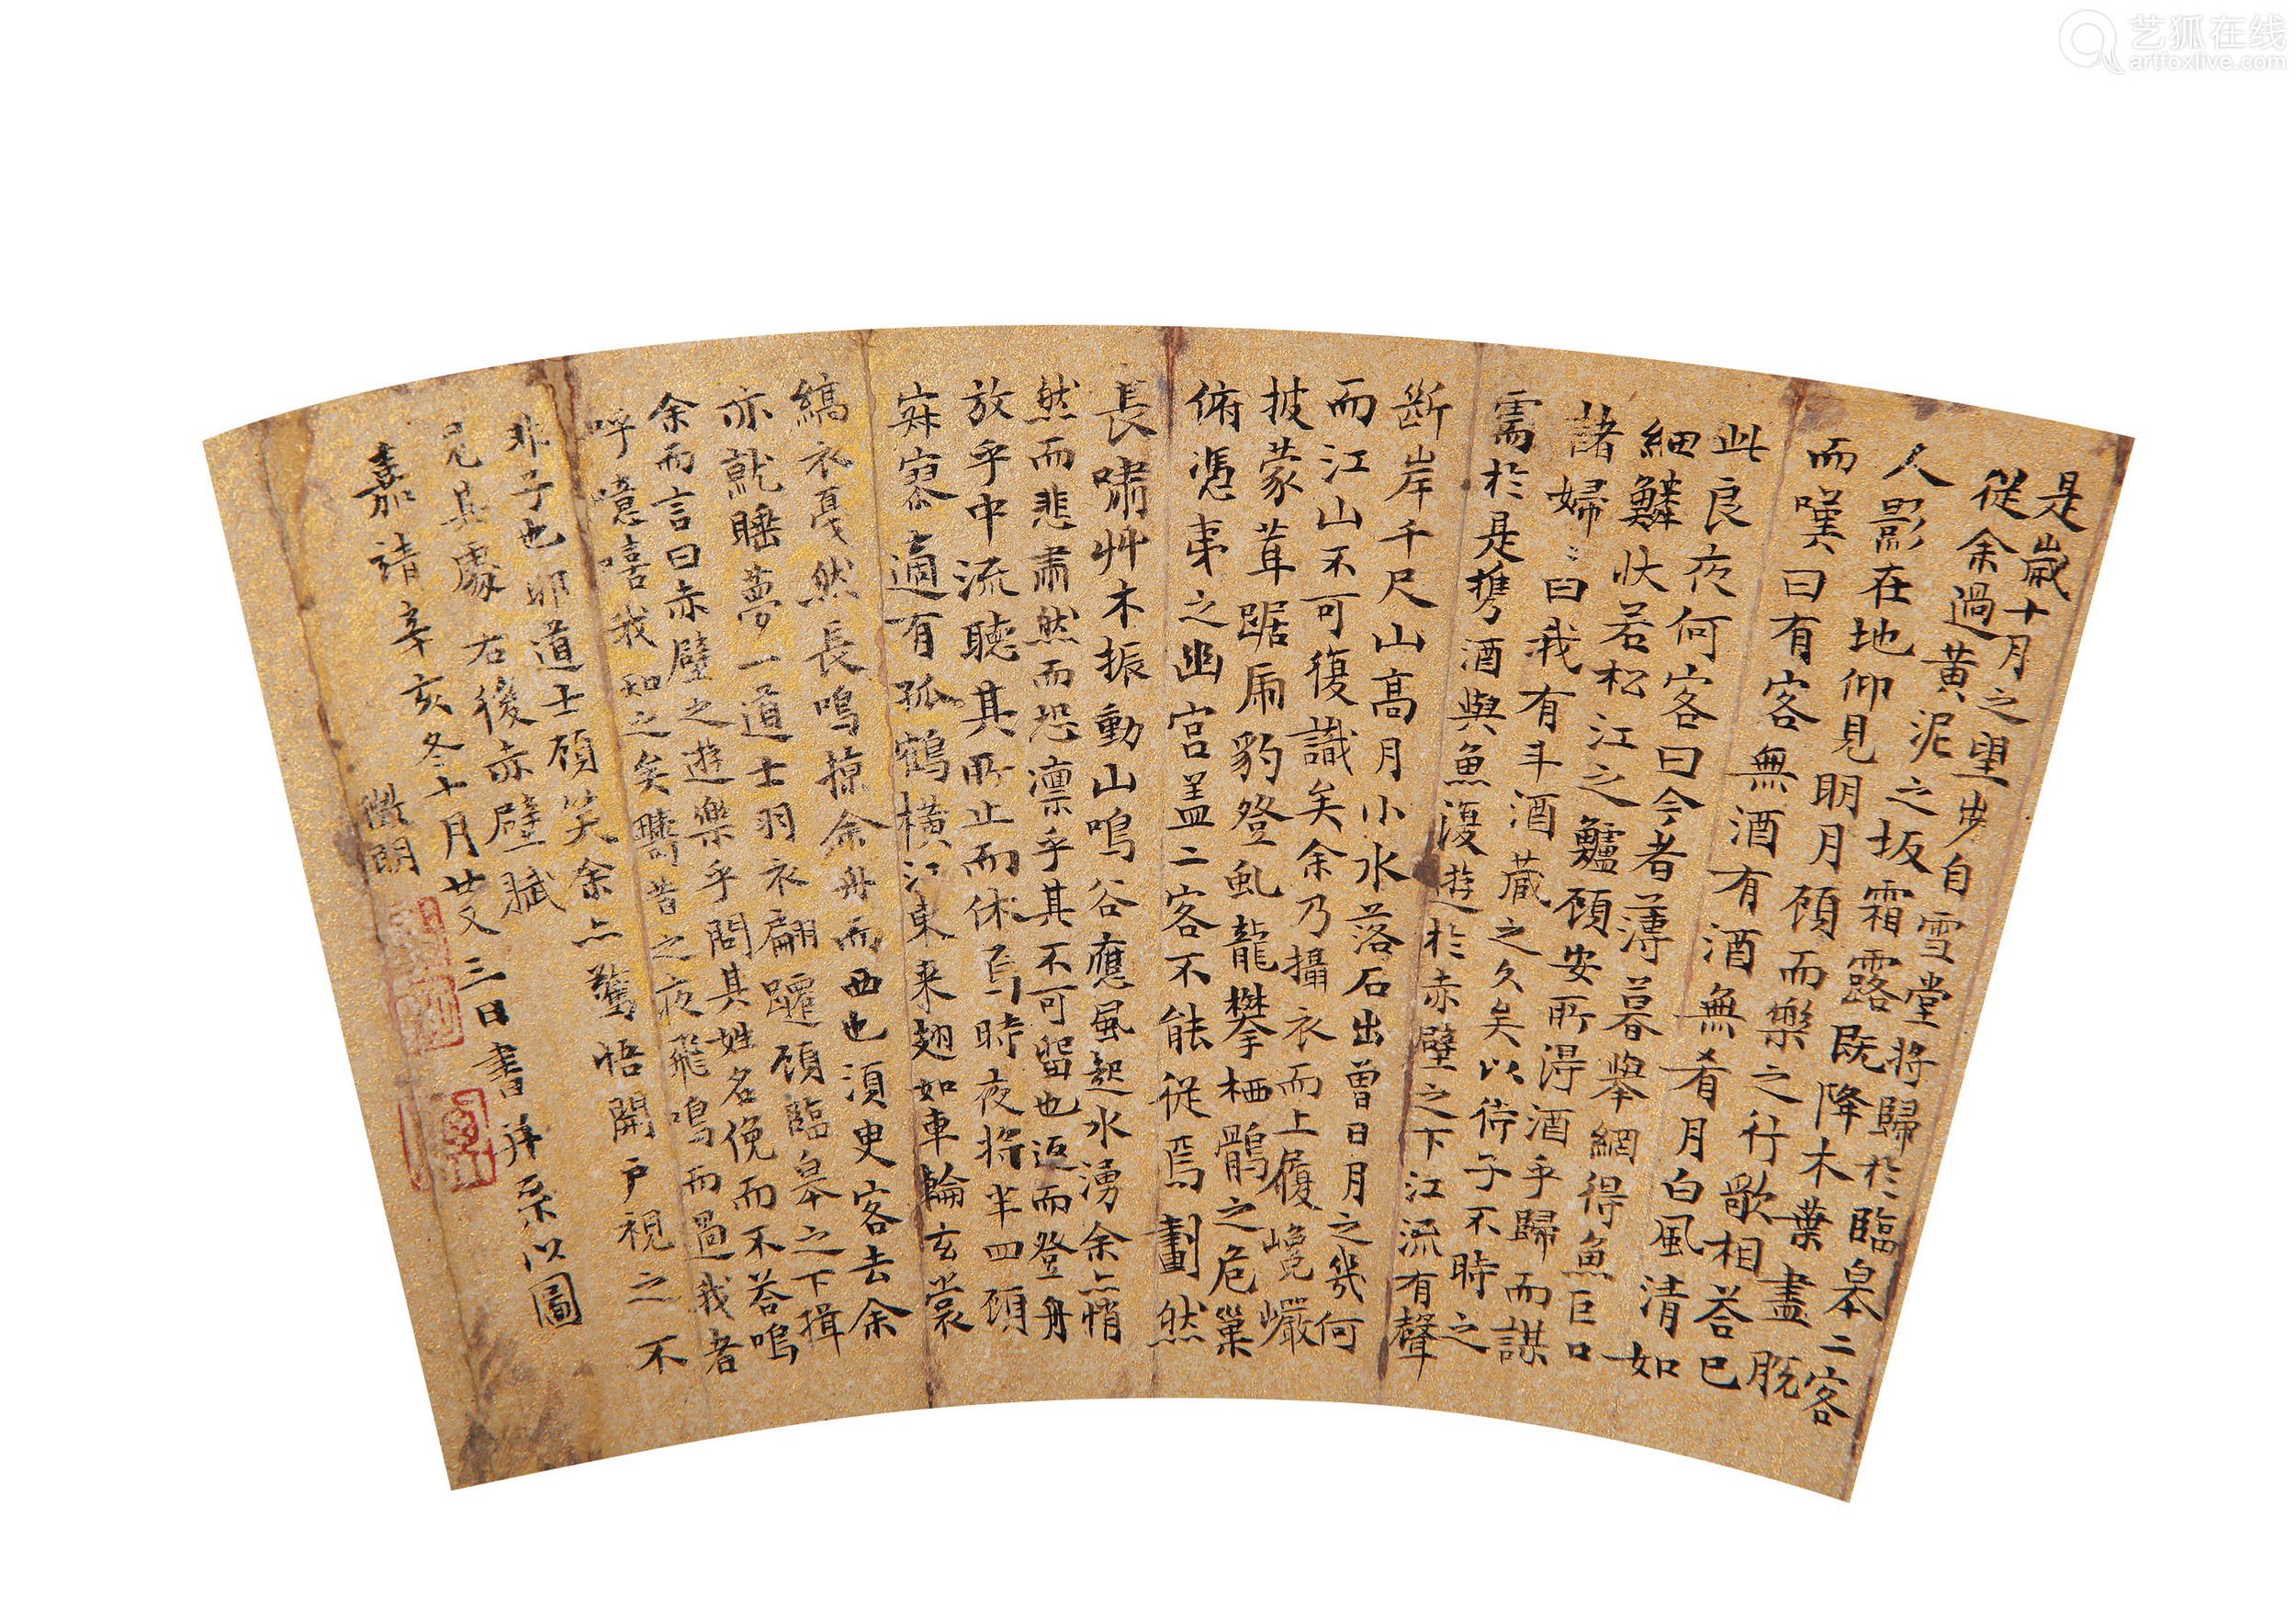 是歲十月之望步自雪堂將歸於臨皋二客
從余過黃泥之坂霜露既降木葉盡脫
人影在地仰見明月顧而樂之行歌相答已
而嘆曰有客無酒有酒無肴月白風清如
此良夜何客曰今者薄暮舉網得魚巨口
細鱗狀若松江之鱸顧安所得酒乎歸而謀
諸婦〻曰我有斗酒藏之久矣以待子不時之
需於是攜酒與魚復遊於赤壁之下江流有聲
斷岸千尺山高月小水落石出曾日月之幾何
而江山不可復識矣余乃攝衣而上履巉巖
披蒙茸踞虎豹登虬龍攀栖鶻之危巢
俯憑夷之幽宮蓋二客不能從焉劃然
長嘯艸木振動山鳴谷應風起水湧余亦悄
然而悲肅然而恐凜乎其不可留也返而登舟
放乎中流聽其所止而休焉時夜將半四顧
寂寥適有孤鶴橫江東來翅如車輪玄裳
縞衣戛然長鳴掠余舟而西也須臾客去余
亦就睡夢一道士羽衣翩躚顧臨皋之下揖
余而言曰赤壁之遊樂乎問其姓名俛而不答嗚
呼噫嘻我知之矣疇昔之夜飛鳴而過我者
非子也耶道士顧笑余亦驚悟開戶視之不
見其處 右後赤壁賦
嘉靖辛亥冬十月廿又三日書并系以圖
徵明
艺狐在线
artfoxlive.com